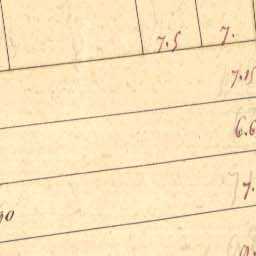 7.5 7.
7.15
6.6
7.
90